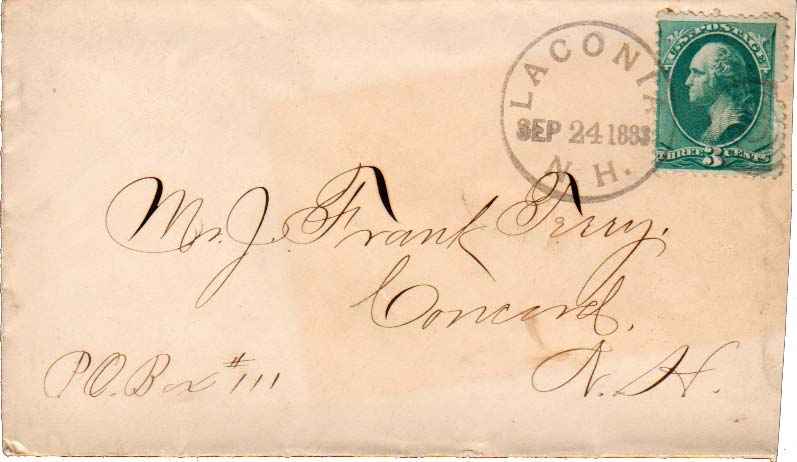 LACONIA
SEP 24 1883
N. H.
U.S. POSTAGE
THREE 3 CENTS
Mr. J. Frank Terry,
Concord,
N. H.
P.O. Box #111